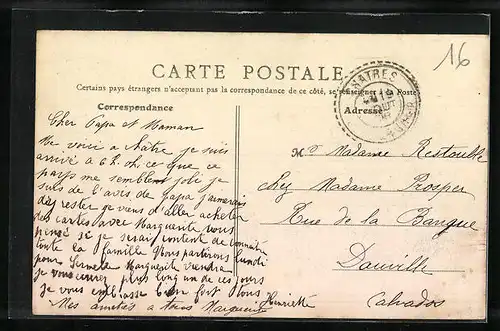 16
CARTE POSTALE
Certains pays étrangers n'acceptant pas la correspondance de ce côté, se renseigner à la Poste
Correspondance
Adresse
CHATRES
Cher Papa et Maman
Me voici a chatre je suis
arrivé a 6h. oh! ce que ce
pays me semblent joli je
suis de l'avis de papa j'aimerais
dés rester je viens d'aller acheter
des cartes avec Marguerite vous
pensé si je serai content de connaitre
toute la famille Nous partirons lundi
pour Marguerite viendra
je vous ecrirez plus long un de ces jours
je vous embrasse bien fort tous
Henriette
Mes amitiés a tous Marguerite
Madame Restouble
chez Madame Prosper
Rue de la Banque
Dauville
Calvados